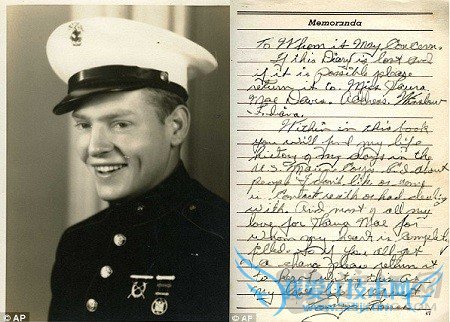 Memoranda
To Whom it May Concern.
If this Diary is lost and
if it is possible please
return it to. Miss Laura
Mae Davis. Address. Winslow
Indiana.
Within in this book
you will find my life
history of my days in the
U.S. Marine Corps. about
People I don't like or come
in Contact with or had dealing
with. And most of all my
love for Laura Mae for
whom my heart is
filled. So if you all get
a chance please return it
to this as
my
© AP
© AP